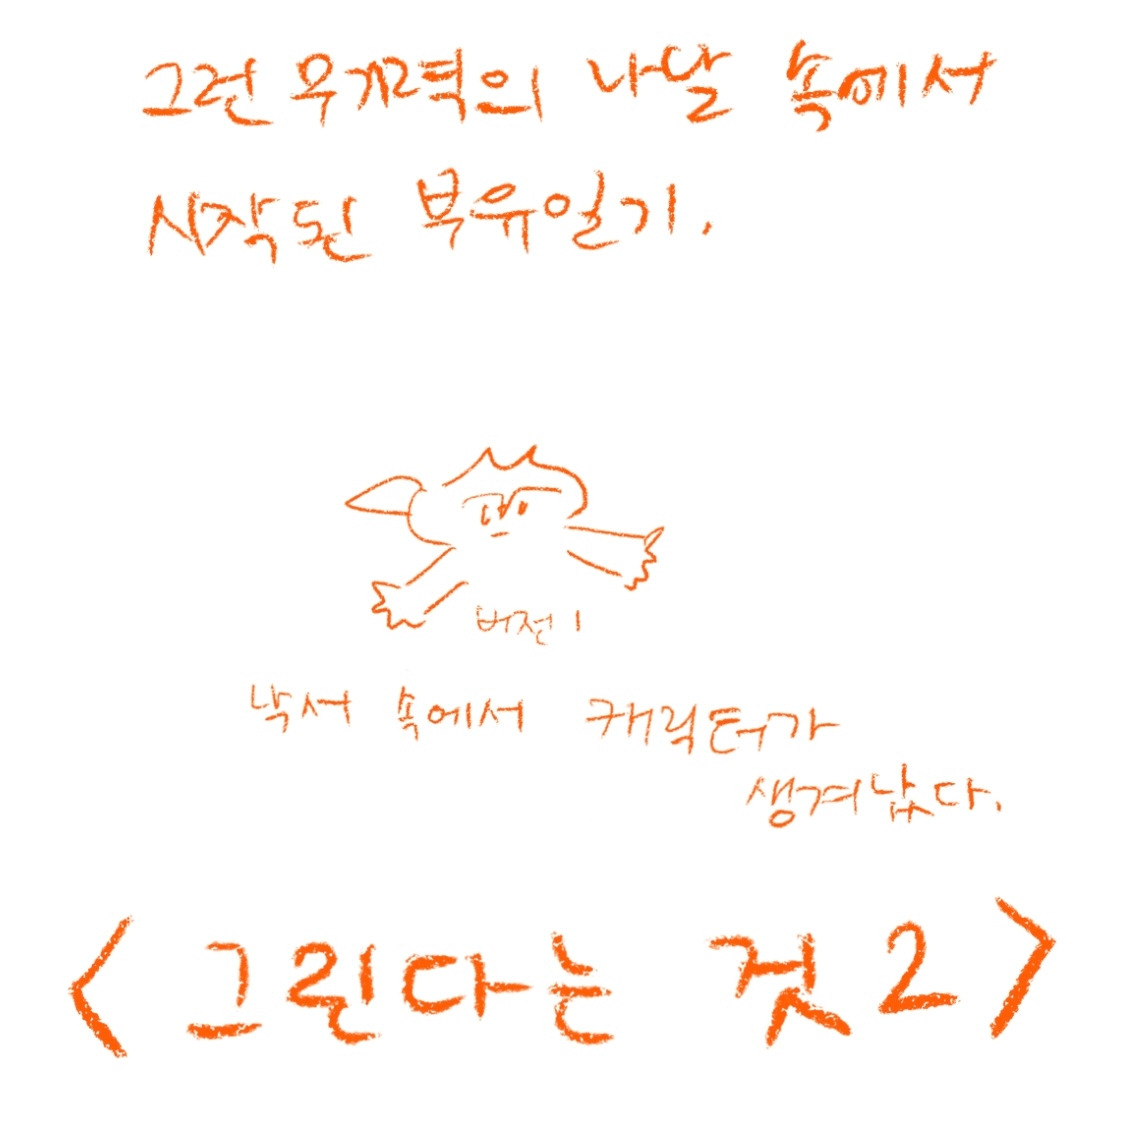 그런 무기력의 나날 속에서
시작된 부유일기.
버전 1
낙서 속에서 캐릭터가
생겨났다.
<그린다는 것 2>